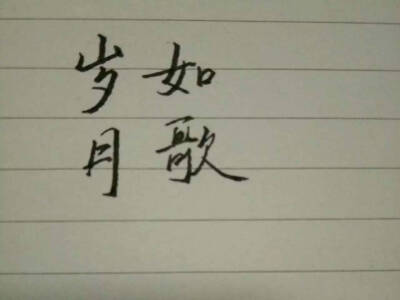 岁如
月歌